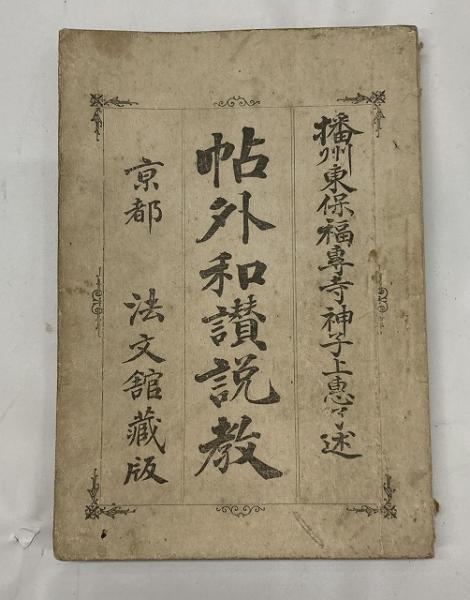 播州東保福専寺神子上恵々述
帖外和讃説教
京都 法文舘蔵版